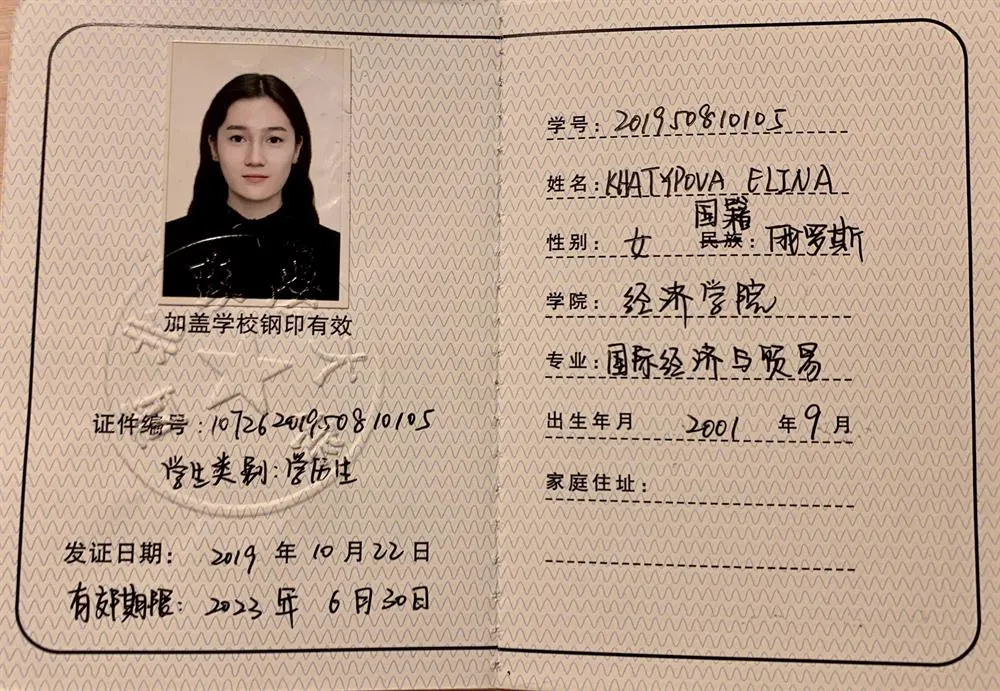 加盖学校钢印有效
证件编号:10726201950810105
学生类别:学历生
发证日期: 2019 年 10 月 22 日
有效期限: 2023 年 6 月 30 日
学号: 201950810105
姓名: KHATYPOVA ELINA
国籍
性别: 女 民族: 俄罗斯
学院: 经济学院
专业: 国际经济与贸易
出生年月 2001 年 9 月
家庭住址: